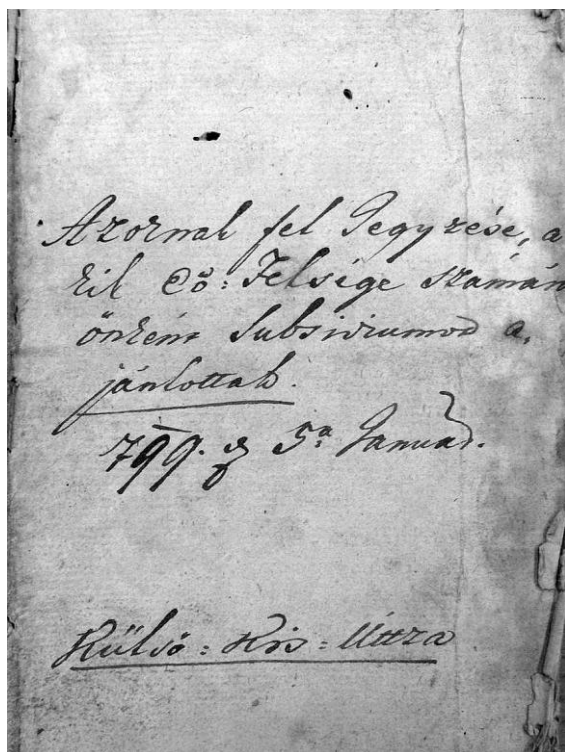 Azoknak fel Jegyzése, a
kik eő: Felsége számán
önként subsidiumod a,
jánlottak.
799. 5a Januar.
Külső: Kis: Uttza